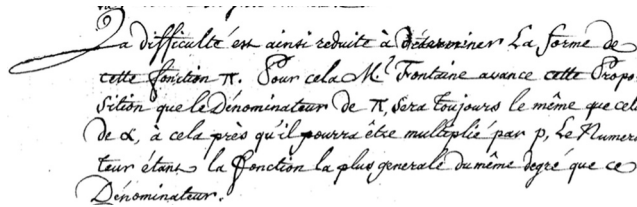 La difficulté est ainsi reduite à déterminer La forme de
cette fonction π. Pour cela M.r Fontaine avance cette Propo
sition que le Dénominateur de π, sera toujours le même que celui
de α, à cela près qu'il pourra être multiplié par p, Le Numera
teur étant la fonction la plus generale du même degré que ce
Dénominateur.